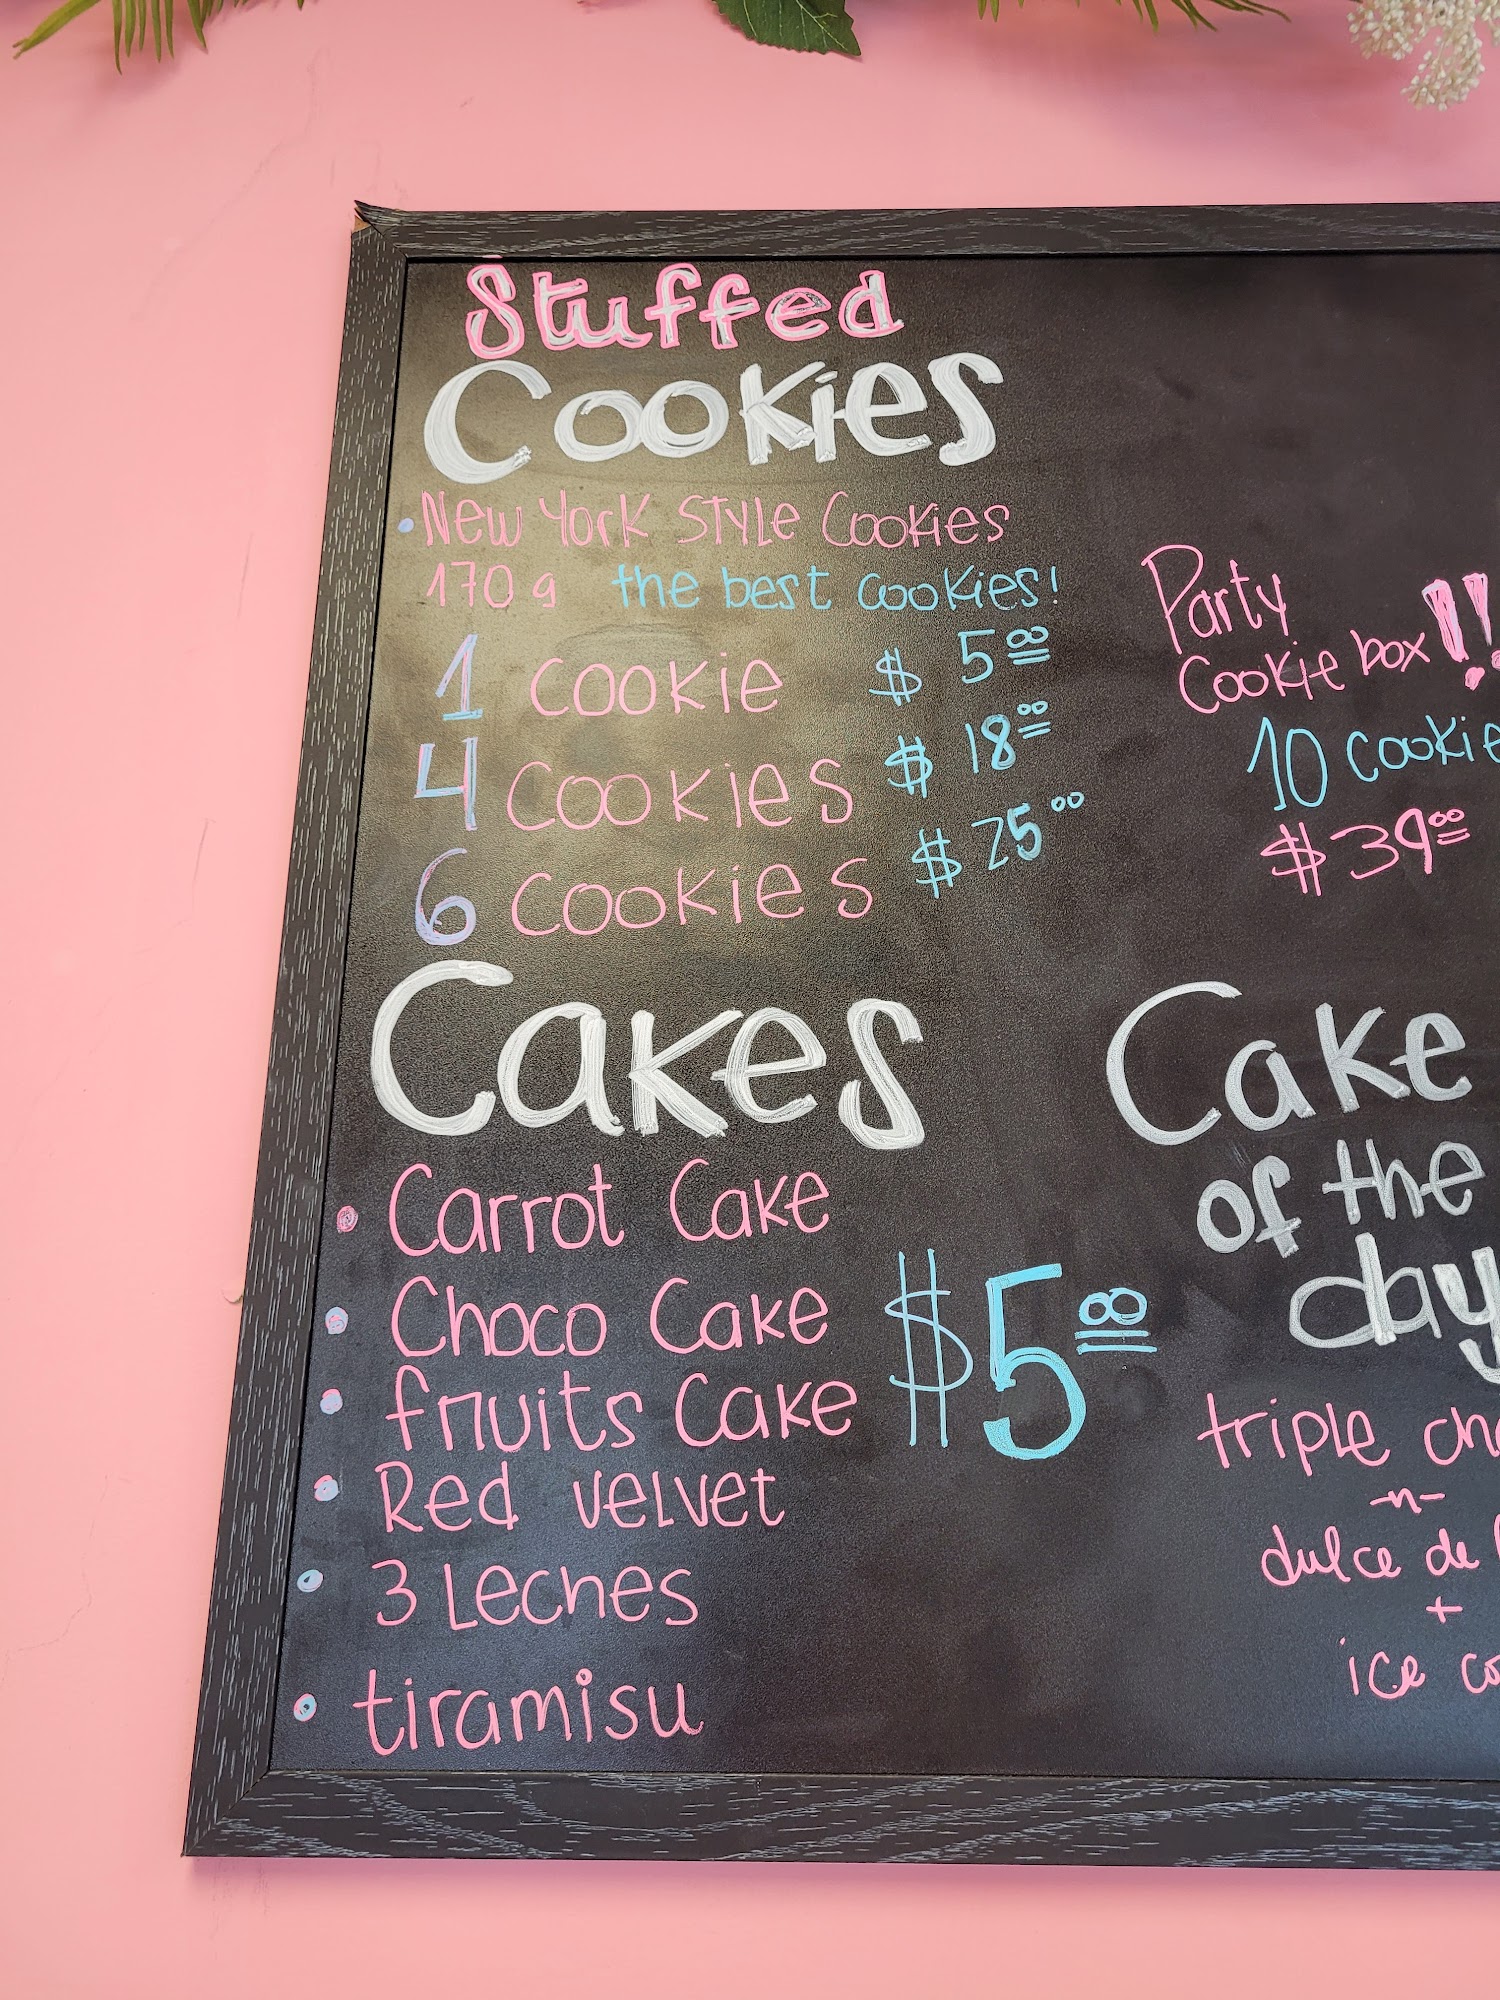 Stuffed
Cookies
New York STYLE Cookies
170 g the best cookies!
1 cookie $ 5.00
4 cookies $ 18.00
6 cookies $ 25.00
Party
Cookie box!!
10 cookie
$39.00
Cakes
Carrot Cake
Choco Cake
fruits Cake
Red velvet
3 Leches
tiramisu
$5.00
Cake
of the
day
triple
-n-
dulce de
+
ice